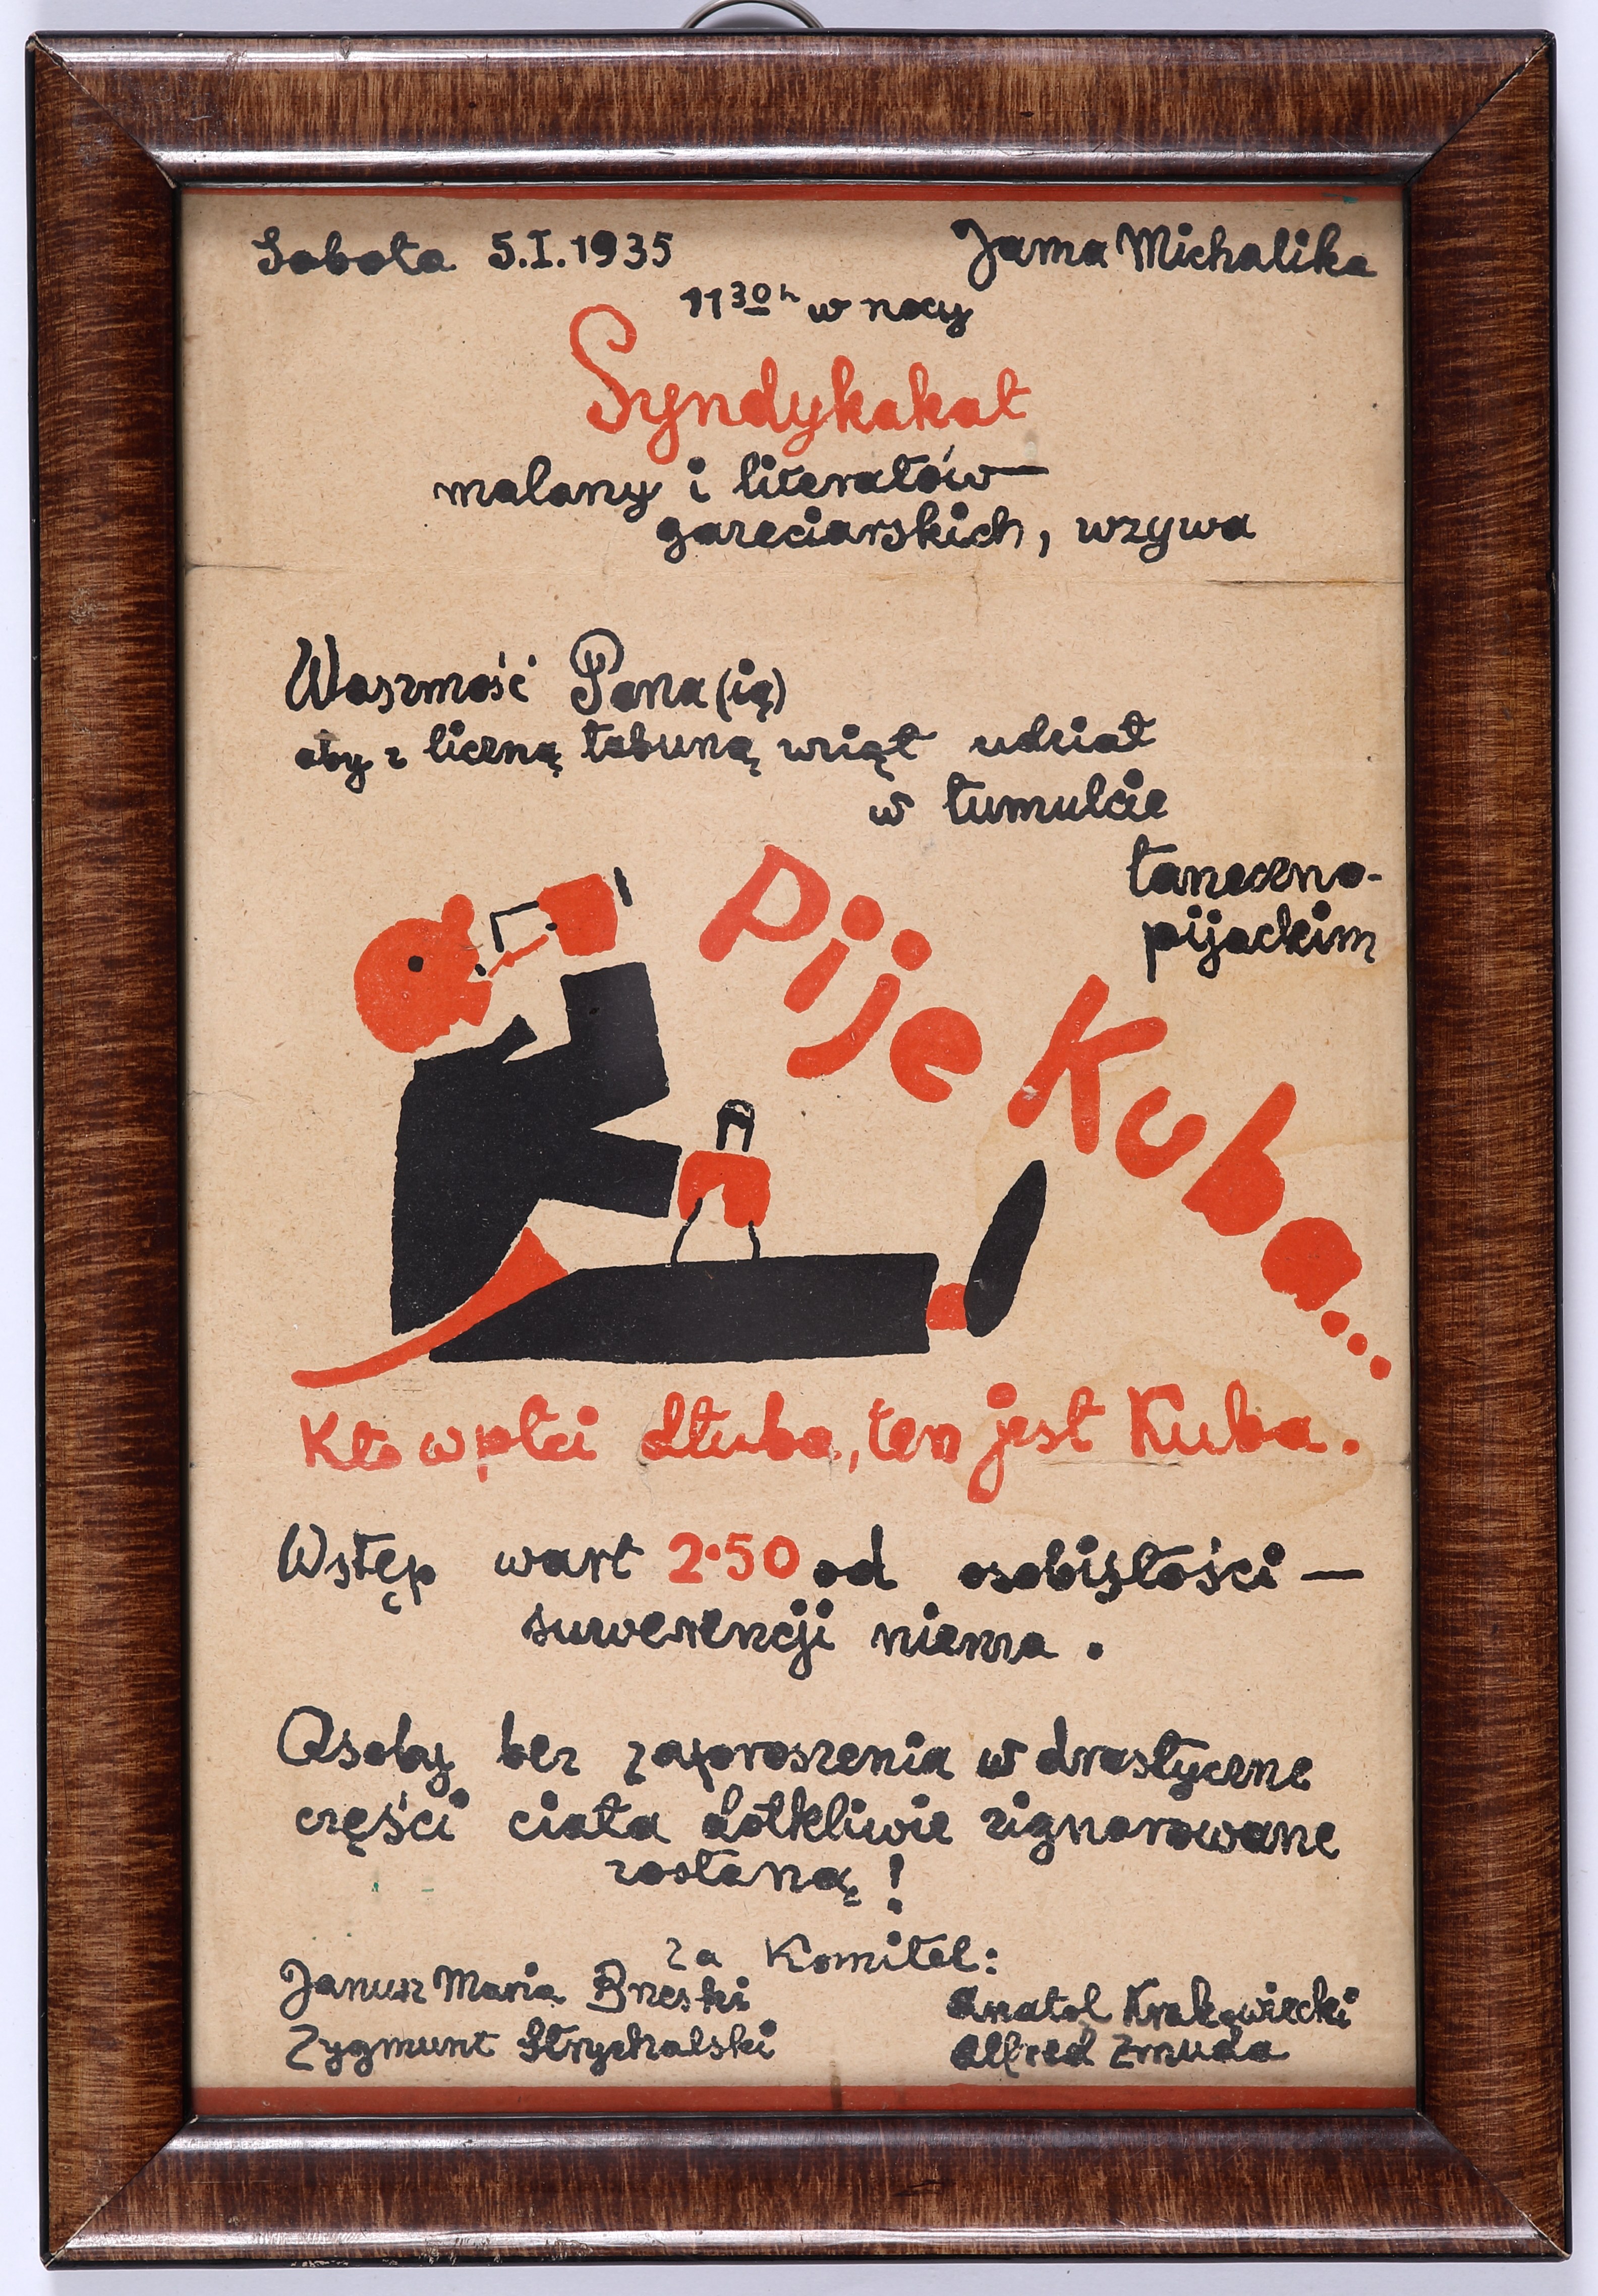 Sobota 5.I.1935
Jama Michalika
11 30 h w nocy
Syndykakat
malany i literatów
gazeciarskich, wzywa
Waszmość Pana (ią)
aby z liczną tabuną wziął udział
w tumulcie
taneczno-
pijackim
Pije Kuba...
Kto w płci dłuba, ten jest Kuba.
Wstęp wart 2·50 od osobistości —
suwerencji niema.
Osoby bez zaproszenia w drastyczne
części ciała dotkliwie zignorowane
zostaną!
za Komitet:
Janusz Maria Brzeski
Zygmunt Strychalski
Anatol Krakowiecki
Alfred Zmuda